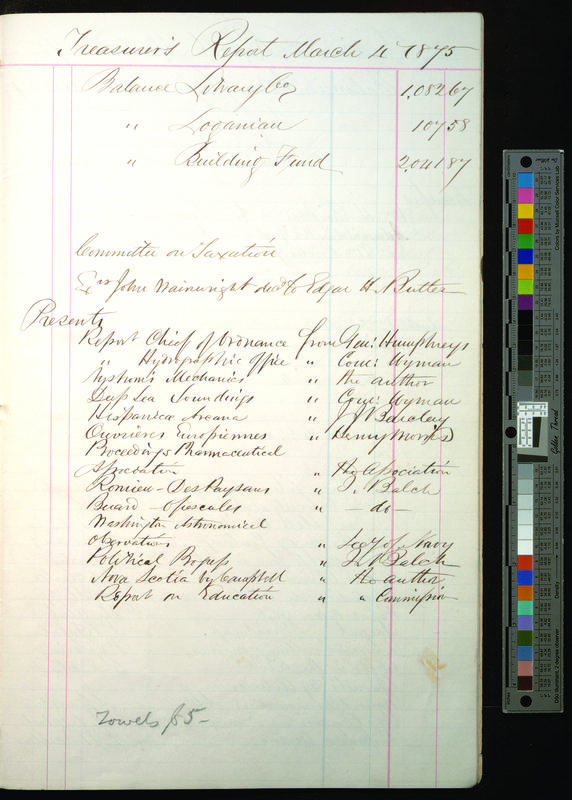 Treasurer's Report March 4 1875
Balance Library Co 1,082 67
" Loganian 107 58
" Building Fund 2,041 87
Committee on Taxation
Exrs John Wainwright decd to Edgar H. Butler
Presents
Report Chief of Ordnance from Genl Humphreys
" Hydrographic Office " Com: Wyman
Nystrom's Mechanics " the author
Deep Sea Soundings " Com: Wyman
Hispanica Arcana " J J Barclay
Ouvrières Européennes " Henry Morris
Proceedings Pharmaceutical
Association " the Association
Romieu - Des Paysans " T. Balch
Buard - Opuscules " - do -
Washington Astronomical
Observations " Secy of Navy
Political Progress " T. Balch
Nova Scotia by Campbell " the author
Report on Education " " Commission
Towels $5-